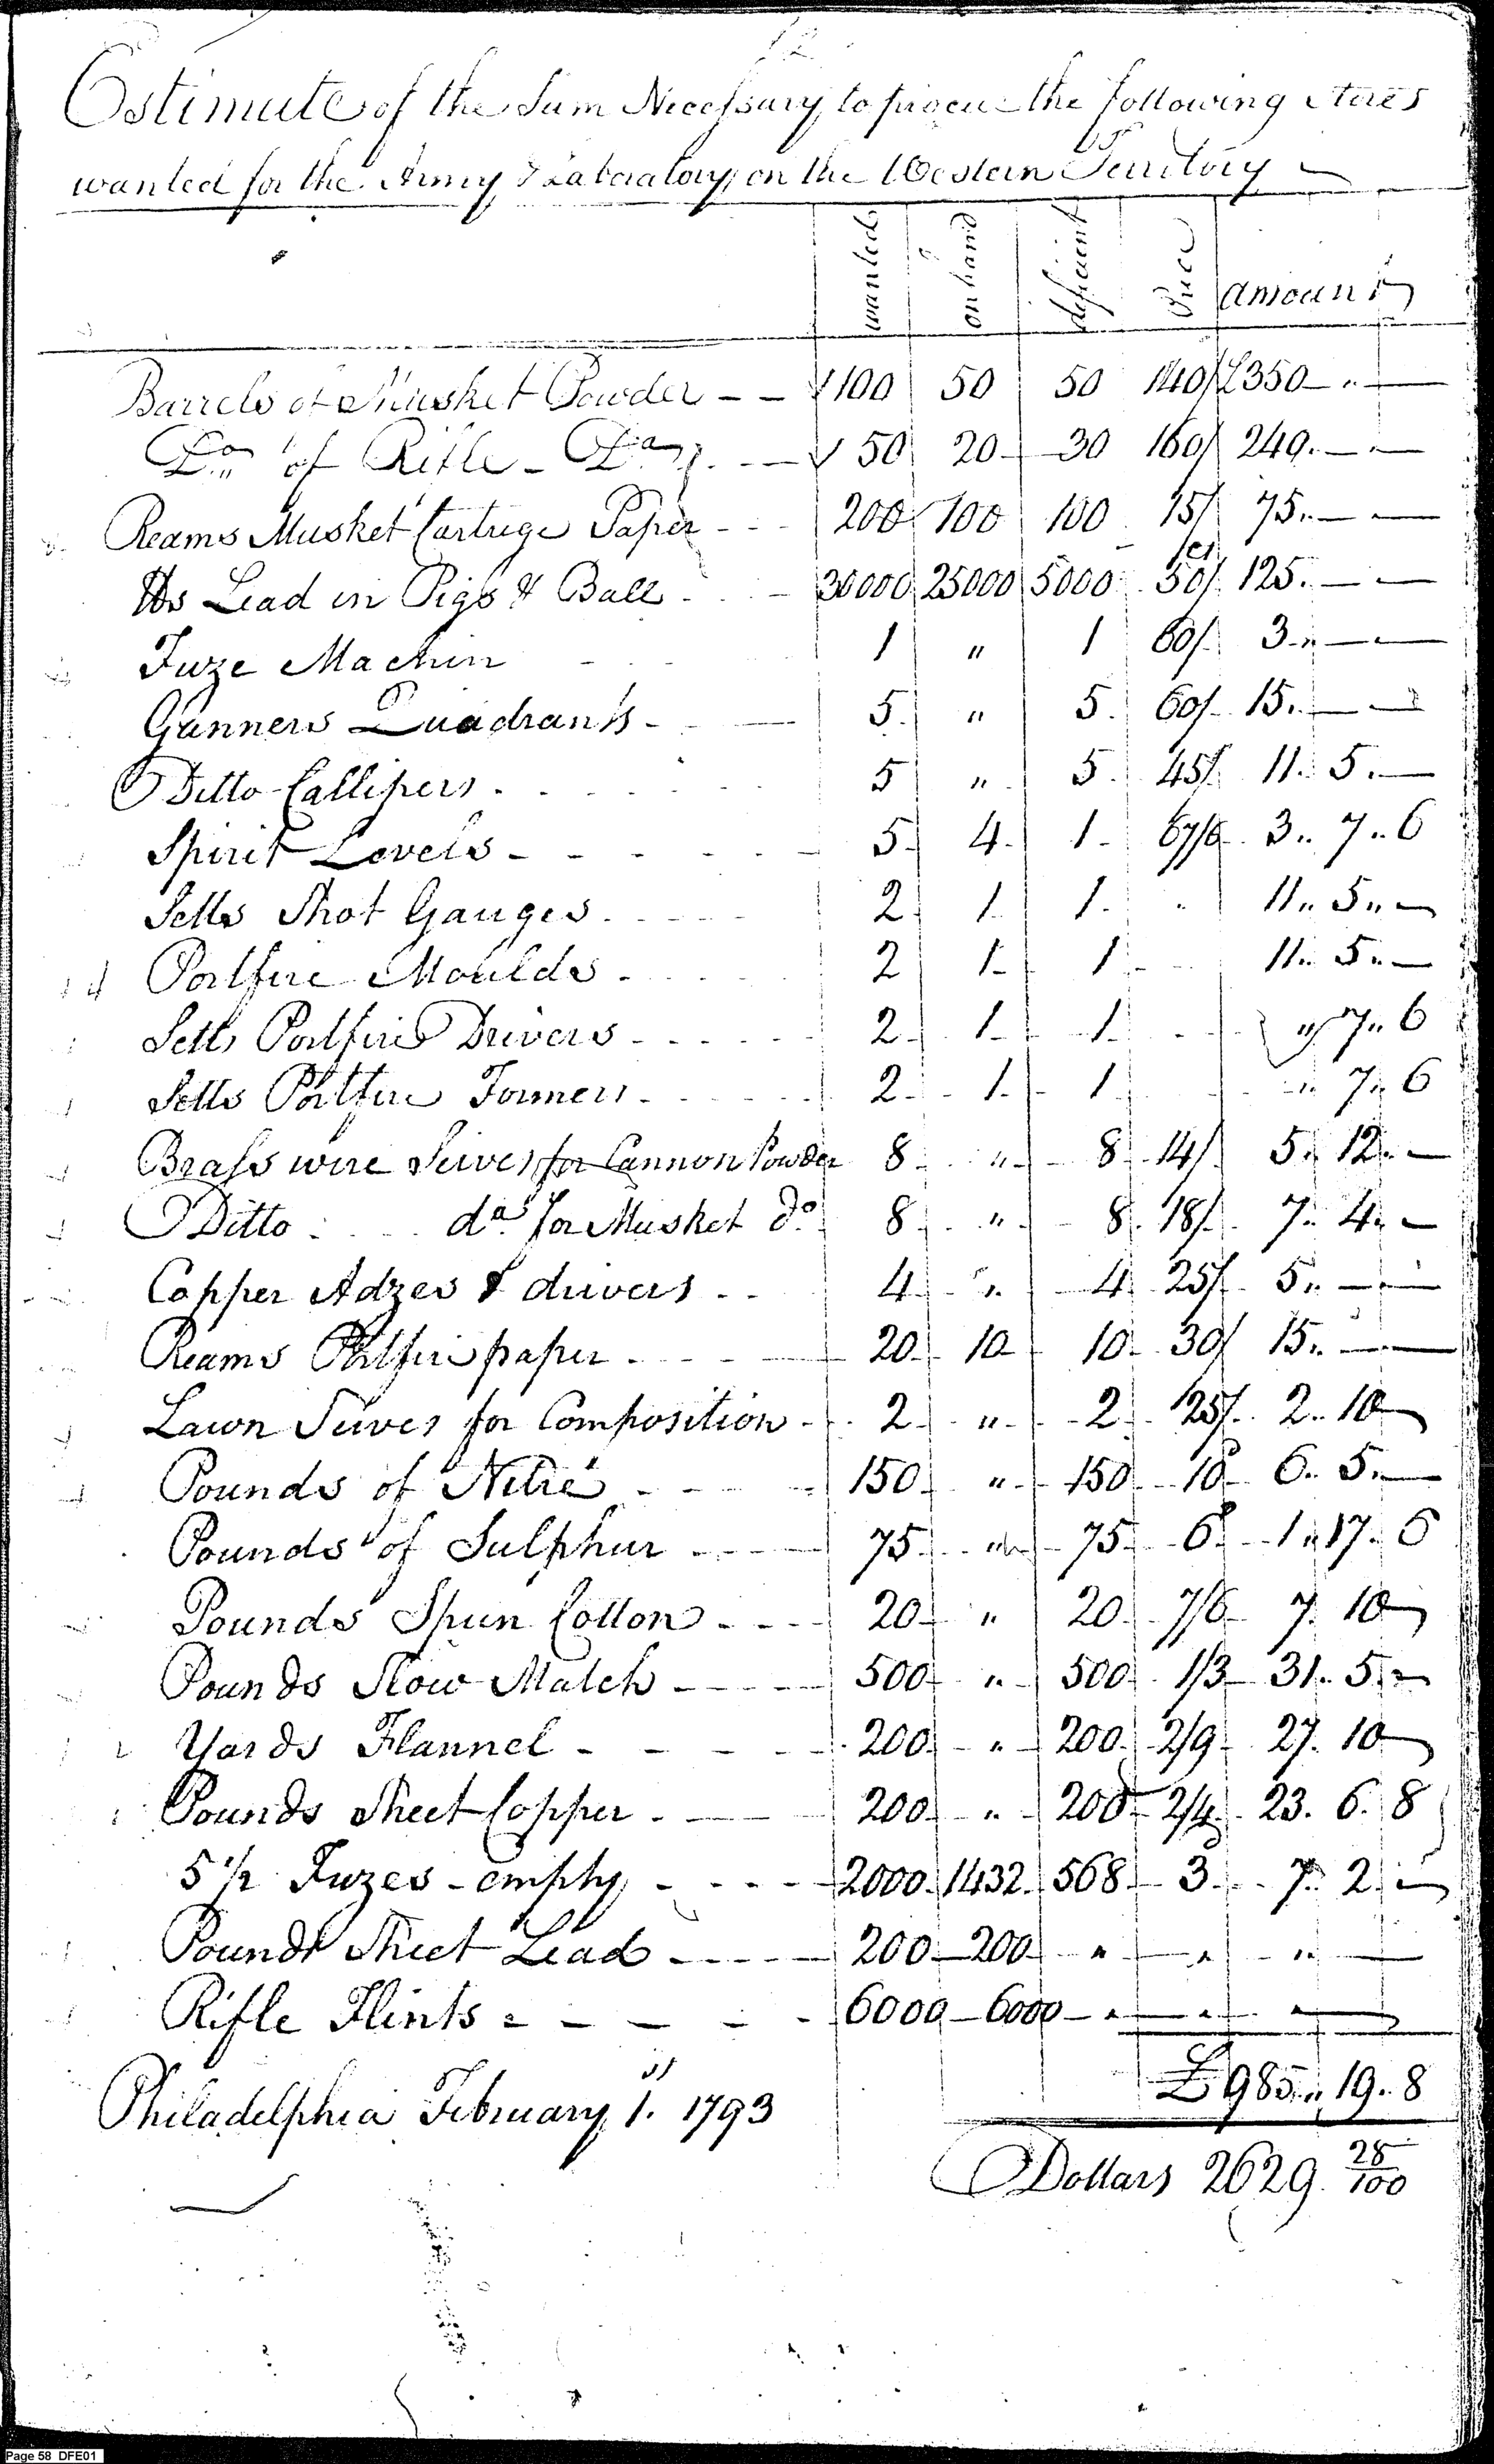 Estimate of the Sum Necessary to procure the following Stores
wanted for the Army & Laboratory on the Western Territory
wanted on hand deficient Price amount
Barrels of Musket Powder 100 50 50 140/ £350 " —
Do of Rifle Do 50 20 30 160/ 240. — —
Reams Musket Cartrige Paper 200 100 100 15/ 75. — —
lbs Lead in Pigs & Ball 30000 25000 5000 50/ 125. — —
Fuze Machin 1 " 1 60/. 3. " — —
Gunners Quadrants 5. " 5. 60/. 15. — —
Ditto Callipers 5 " 5. 45/. 11. 5. —
Spirit Levels 5 4. 1 67/6 3 .. 7 .. 6
Setts Shot Gauges 2 1. 1. " 11 .. 5 .. —
Portfire Moulds 2 1. 1 11 .. 5 .. —
Setts Portfire Drivers 2 1. 1. " 7 .. 6
Setts Portfire Formers 2 1. 1 " 7 .. 6
Brass wire Seives for Cannon Powder 8 " 8 14/. 5 .. 12 .. —
Ditto do for Musket do 8 " 8. 18/. 7 .. 4 .. —
Copper Adzes & drivers 4 " 4 25/. 5 .. — —
Reams Portfire paper 20 10 10 30/ 15 .. — —
Lawn Seives for Composition 2 " 2 25/. 2 .. 10 —
Pounds of Nitre 150 " 150 10d 6 .. 5 .. —
Pounds of Sulphur 75 " 75 6d 1 .. 17 .. 6
Pounds Spun Cotton 20 " 20 7/6 7. 10 —
Pounds Slow Match 500 " 500 1/3 31. 5. —
Yards Flannel 200 " 200 2/9 27. 10 —
Pounds Sheet Copper 200 " 200 2/4 23. 6. 8
5 1/2 Fuzes - empty 2000 1432 568 3d 7. 2. —
Pounds Sheet Lead 200 200 " " "
Rifle Flints 6000 6000 " " "
£ 985 .. 19 .. 8
Philadelphia February 1st. 1793
Dollars 2629. 28/100
Page 58 DFE01